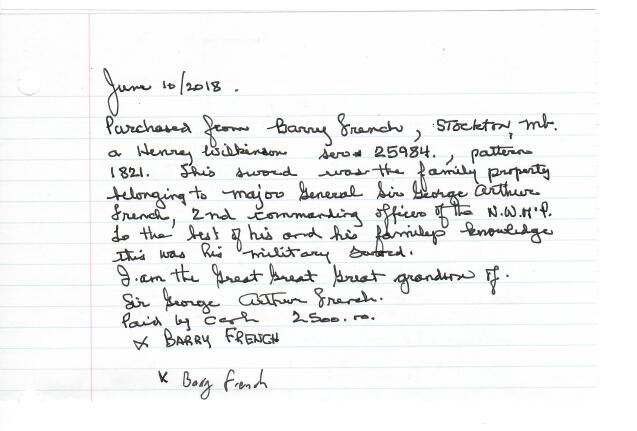 June 10/2018.
Purchased from Barry French, Stockton, Mb.
a Henry Wilkinson ser# 25984., pattern
1821. This sword was the family property
belonging to major General Sir George Arthur
French, 2nd commanding officer of the N.W.M.P.
To the best of his and his familys knowledge
this was his military sword.
I am the Great Great Great grandson of.
Sir George Arthur French.
Paid by cash 2500.00.
x BARRY FRENCH
x Barry French